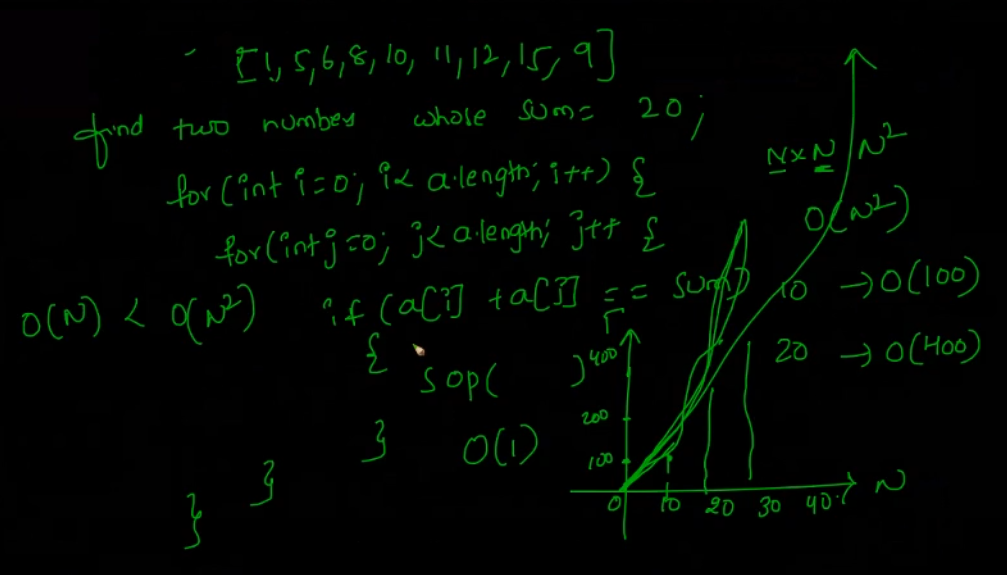 [1, 5, 6, 8, 10, 11, 12, 15, 9]
find two numbers whose sum = 20;
for (int i=0; i< a.length; i++) {
for (int j=0; j< a.length; j++ {
if (a[i] + a[j] == sum)
{
sop( )
}
}
}
O(1)
O(N) < O(N²)
N×N
N²
O(N²)
10 → O(100)
20 → O(400)
400
200
100
0 10 20 30 40
N